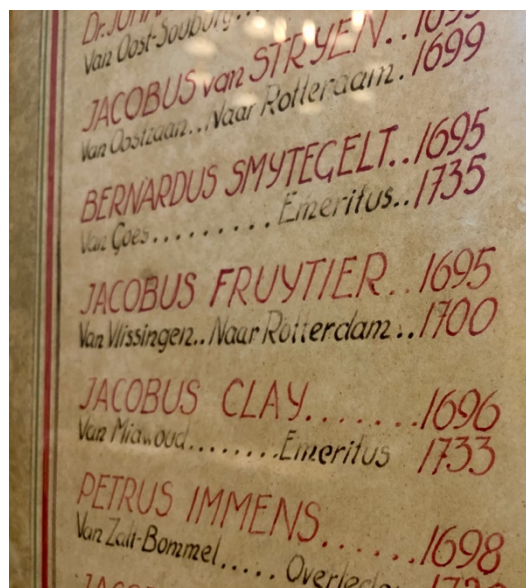 Van Oost-Souburg..
JACOBUS van STRYEN..
Van Oostzaan...Naar Rotterdam.1699
BERNARDUS SMYTEGELT..1695
Van Goes.........Emeritus..1735
JACOBUS FRUYTIER..1695
Van Vlissingen..Naar Rotterdam..1700
JACOBUS CLAY.......1696
Van Midwoud........Emeritus 1733
PETRUS IMMENS......1698
Van Zalt-Bommel.....